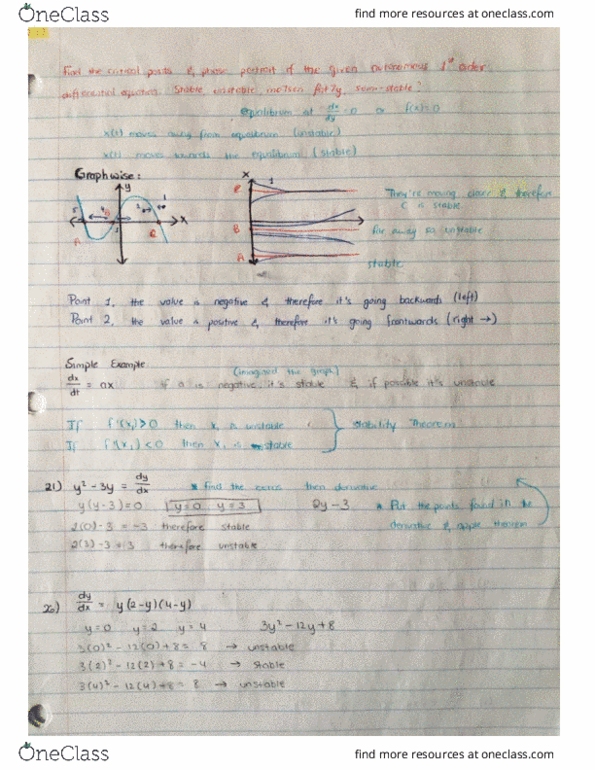 OneClass
find more resources at oneclass.com
Find the critical points & phase portrait of the given autonomous 1st order
differential equation. Stable unstable semi-stable?
equilibrium at dx/dy = 0 or f(x) = 0
x(t) moves away from equilibrium (unstable)
x(t) moves towards the equilibrium (stable)
Graphwise:
y
x
1
2
3
4
5
A
C
X
1
C
B
A
They're moving closer & therefore
C is stable
far away so unstable
stable
Point 1, the value is negative & therefore it's going backwards (left)
Point 2, the value is positive & therefore it's going frontwards (right →)
Simple Example
(imagined the graph)
dx/dt = ax if a is negative it's stable & if possible it's unstable
If f'(x₁)>0 then x₁ is unstable
Stability Theorem
If f'(x₁)<0 then x₁ is stable
21) y² - 3y = dy/dx * find the then derivative
y(y-3)=0 y=0 y=3 2y-3 * Put the points found in the
derivative & theorem
2(0)-3 = -3 therefore stable
2(3)-3 = 3 therefore unstable
20) dy/dx = y(2-y)(4-y)
y=0 y=2 y=4 3y²-12y+8
3(0)²-12(0)+8= 8 → unstable
3(2)²-12(2)+8= -4 → stable
3(4)²-12(4)+8= 8 → unstable
OneClass
find more resources at oneclass.com